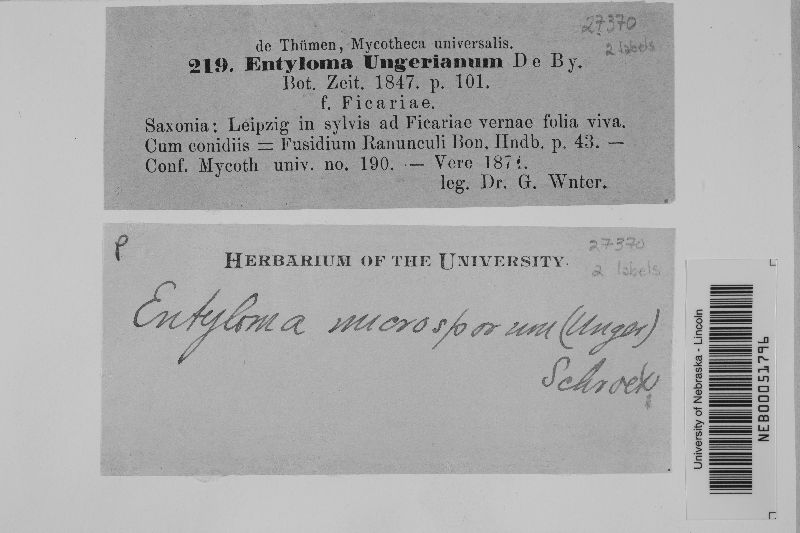 27370
2 labels
de Thümen, Mycotheca universalis.
219. Entyloma Ungerianum De By.
Bot. Zeit. 1847. p. 101.
f. Ficariae.
Saxonia: Leipzig in sylvis ad Ficariae vernae folia viva.
Cum conidiis = Fusidium Ranunculi Bon. Hndb. p. 43. —
Conf. Mycoth univ. no. 190. — Vere
leg. Dr. G. Wnter.
P
HERBARIUM OF THE UNIVERSITY.
27370
2 labels
Entyloma microsporum (Unger)
Schroek
University of Nebraska - Lincoln
NEB00051796